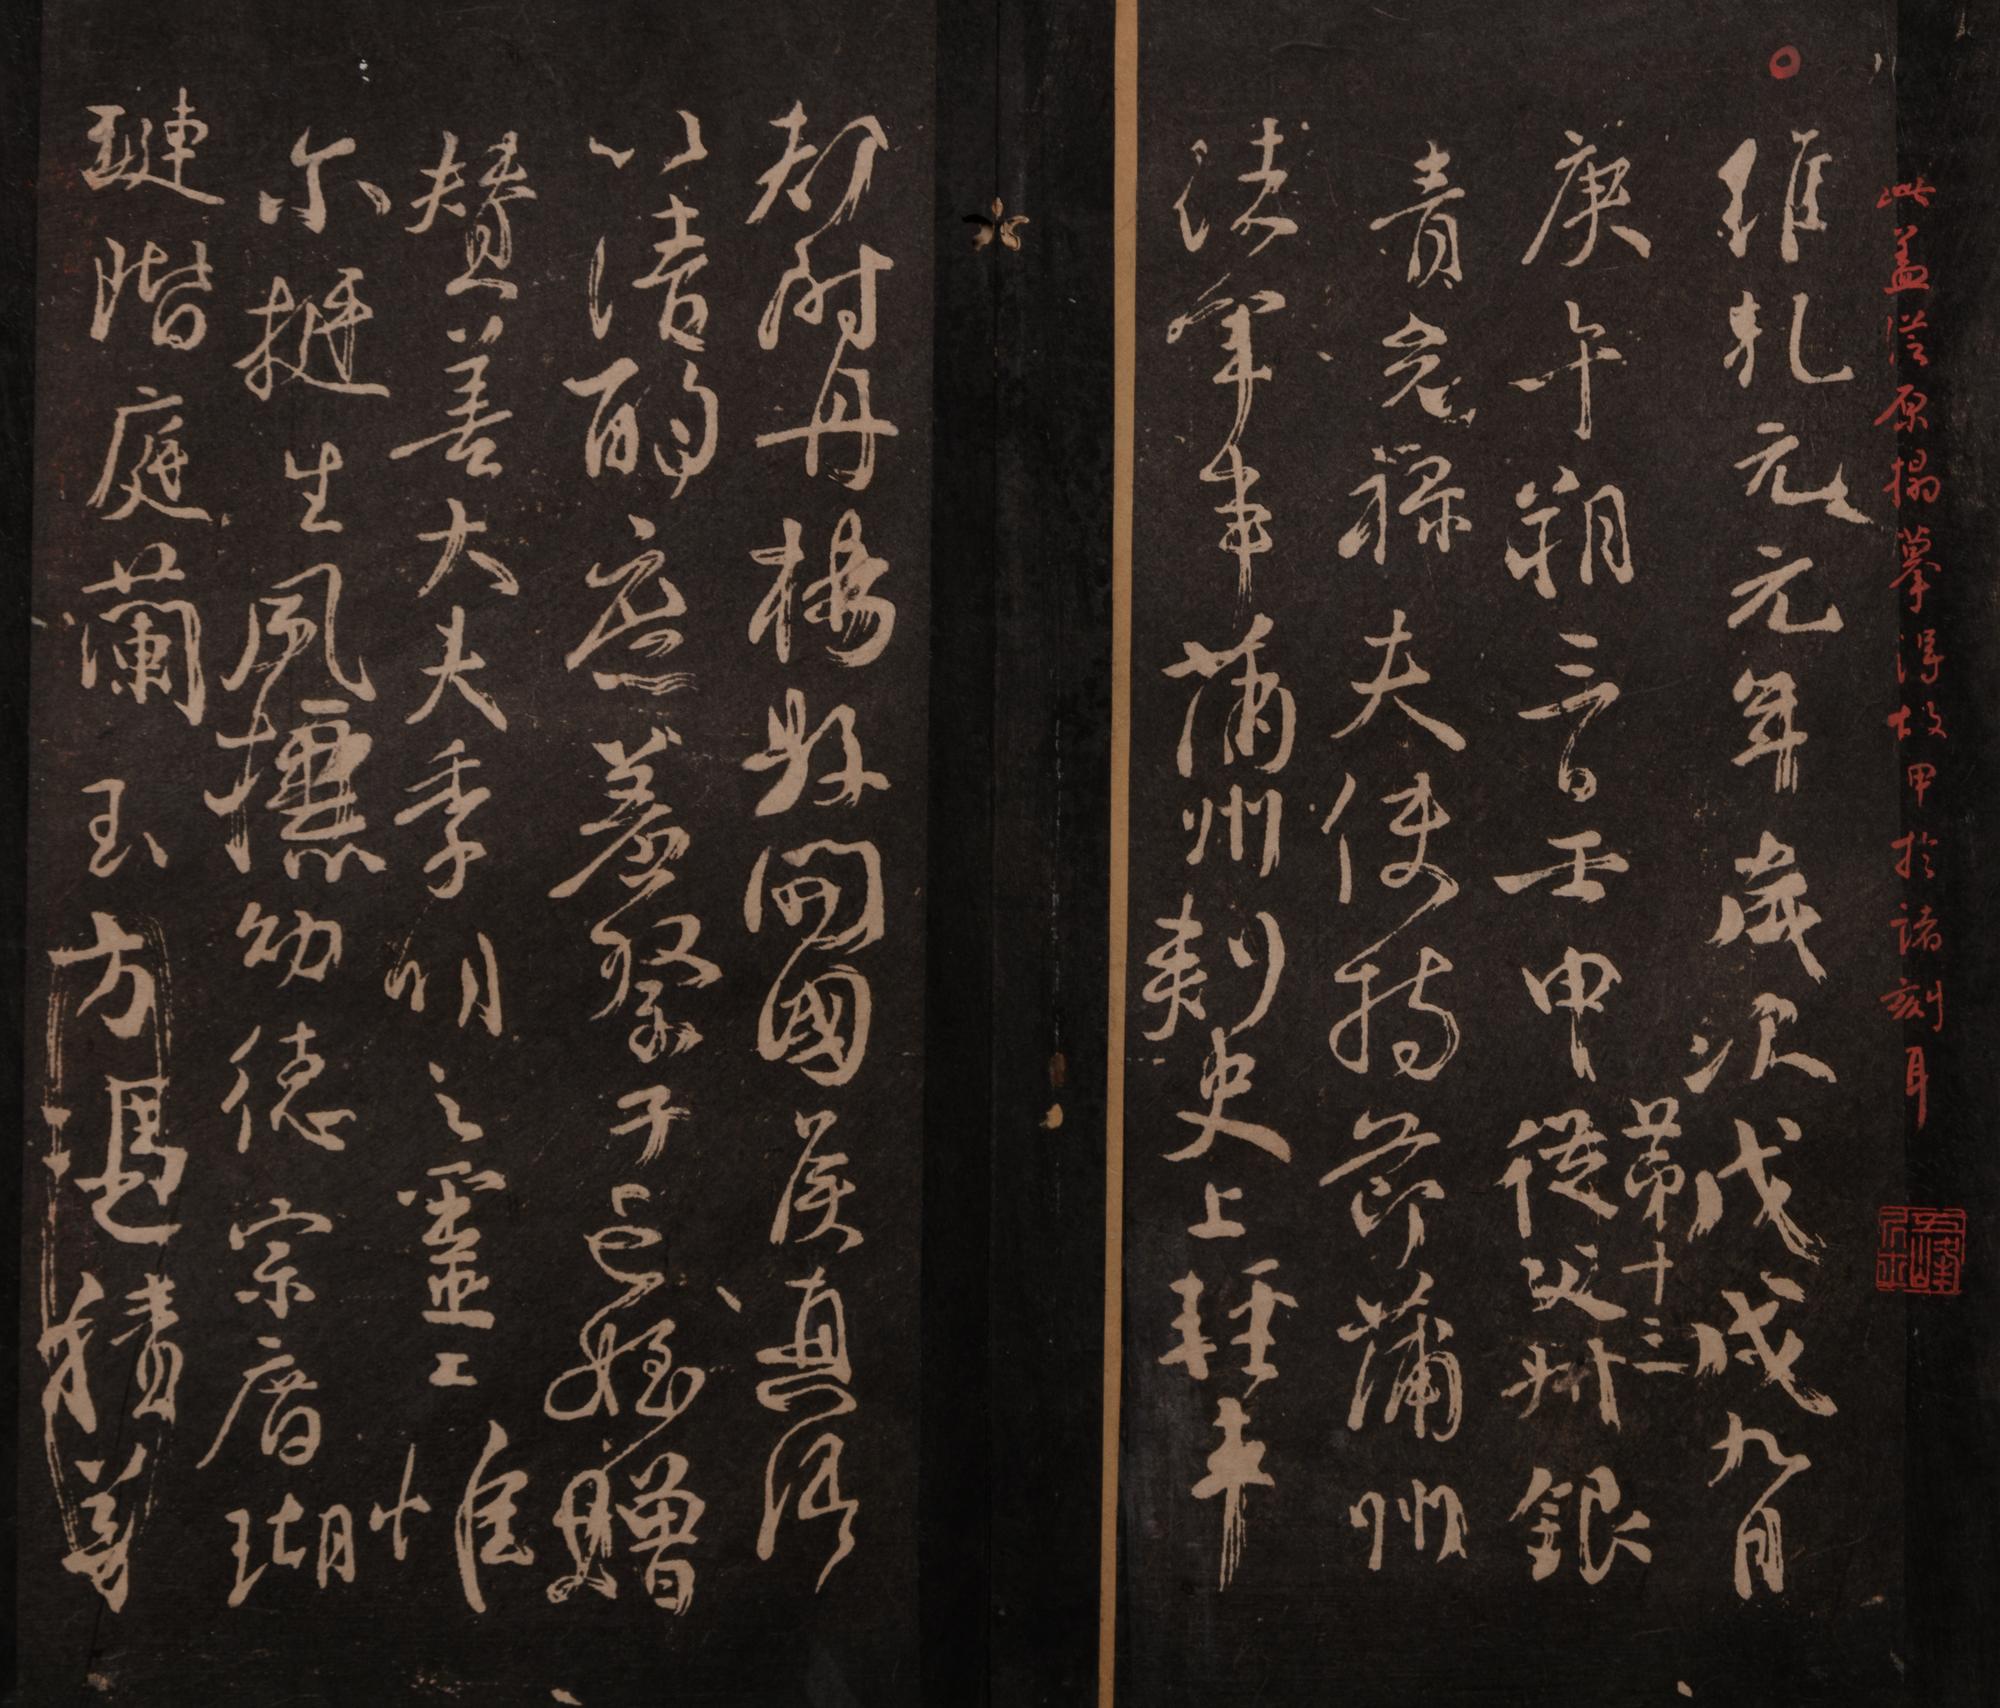 此蓋從原搨摹得故甲於諸刻耳
維乾元元年歲次戊戌九月
庚午朔三日壬申第十三從父銀
青光祿夫使持節蒲州
諸軍事蒲州刺史上輕車
都尉丹楊縣開國侯真卿
以清酌庶羞祭于亡姪贈
贊善大夫季明之靈曰惟
爾挺生夙標幼德宗廟瑚
璉階庭蘭玉方憑積善